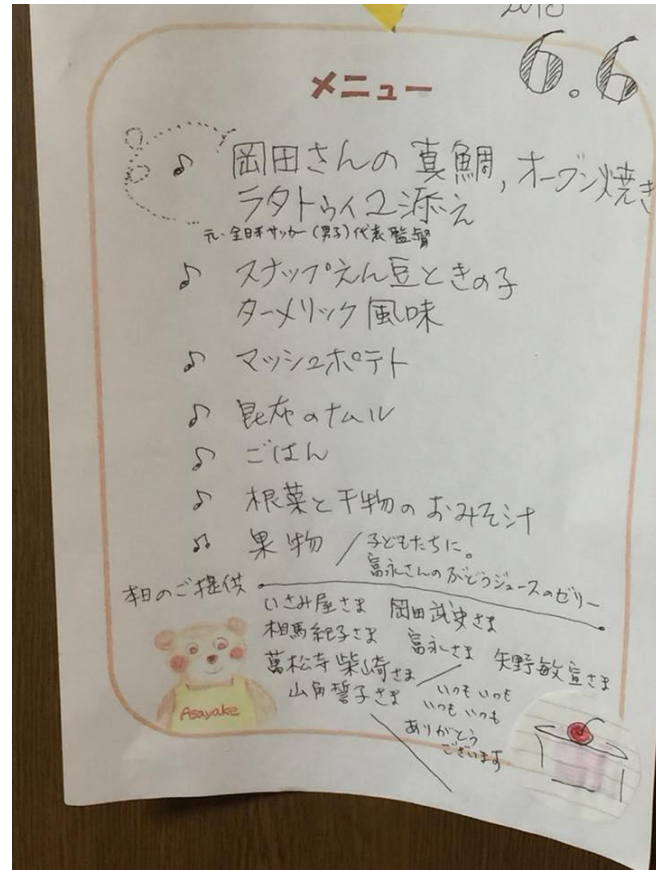 6.6
メニュー
♪ 岡田さんの真鯛,オーブン焼き
ラタトゥイユ添え
元・全日本サッカー(男子)代表監督
♪ スナップえん豆ときの子
ターメリック風味
♪ マッシュポテト
♪ 昆布のナムル
♪ ごはん
♪ 根菜と干物のおみそ汁
♫ 果物 / 子どもたちに。
富永さんのぶどうジュースのゼリー
本日のご提供
いさみ屋さま 岡田武史さま
相馬紀子さま 富永さま 矢野敏宣さま
萬松寺柴崎さま
山角誓子さま
いつもいつも
いつもいつも
ありがとう
ございます
Asayake